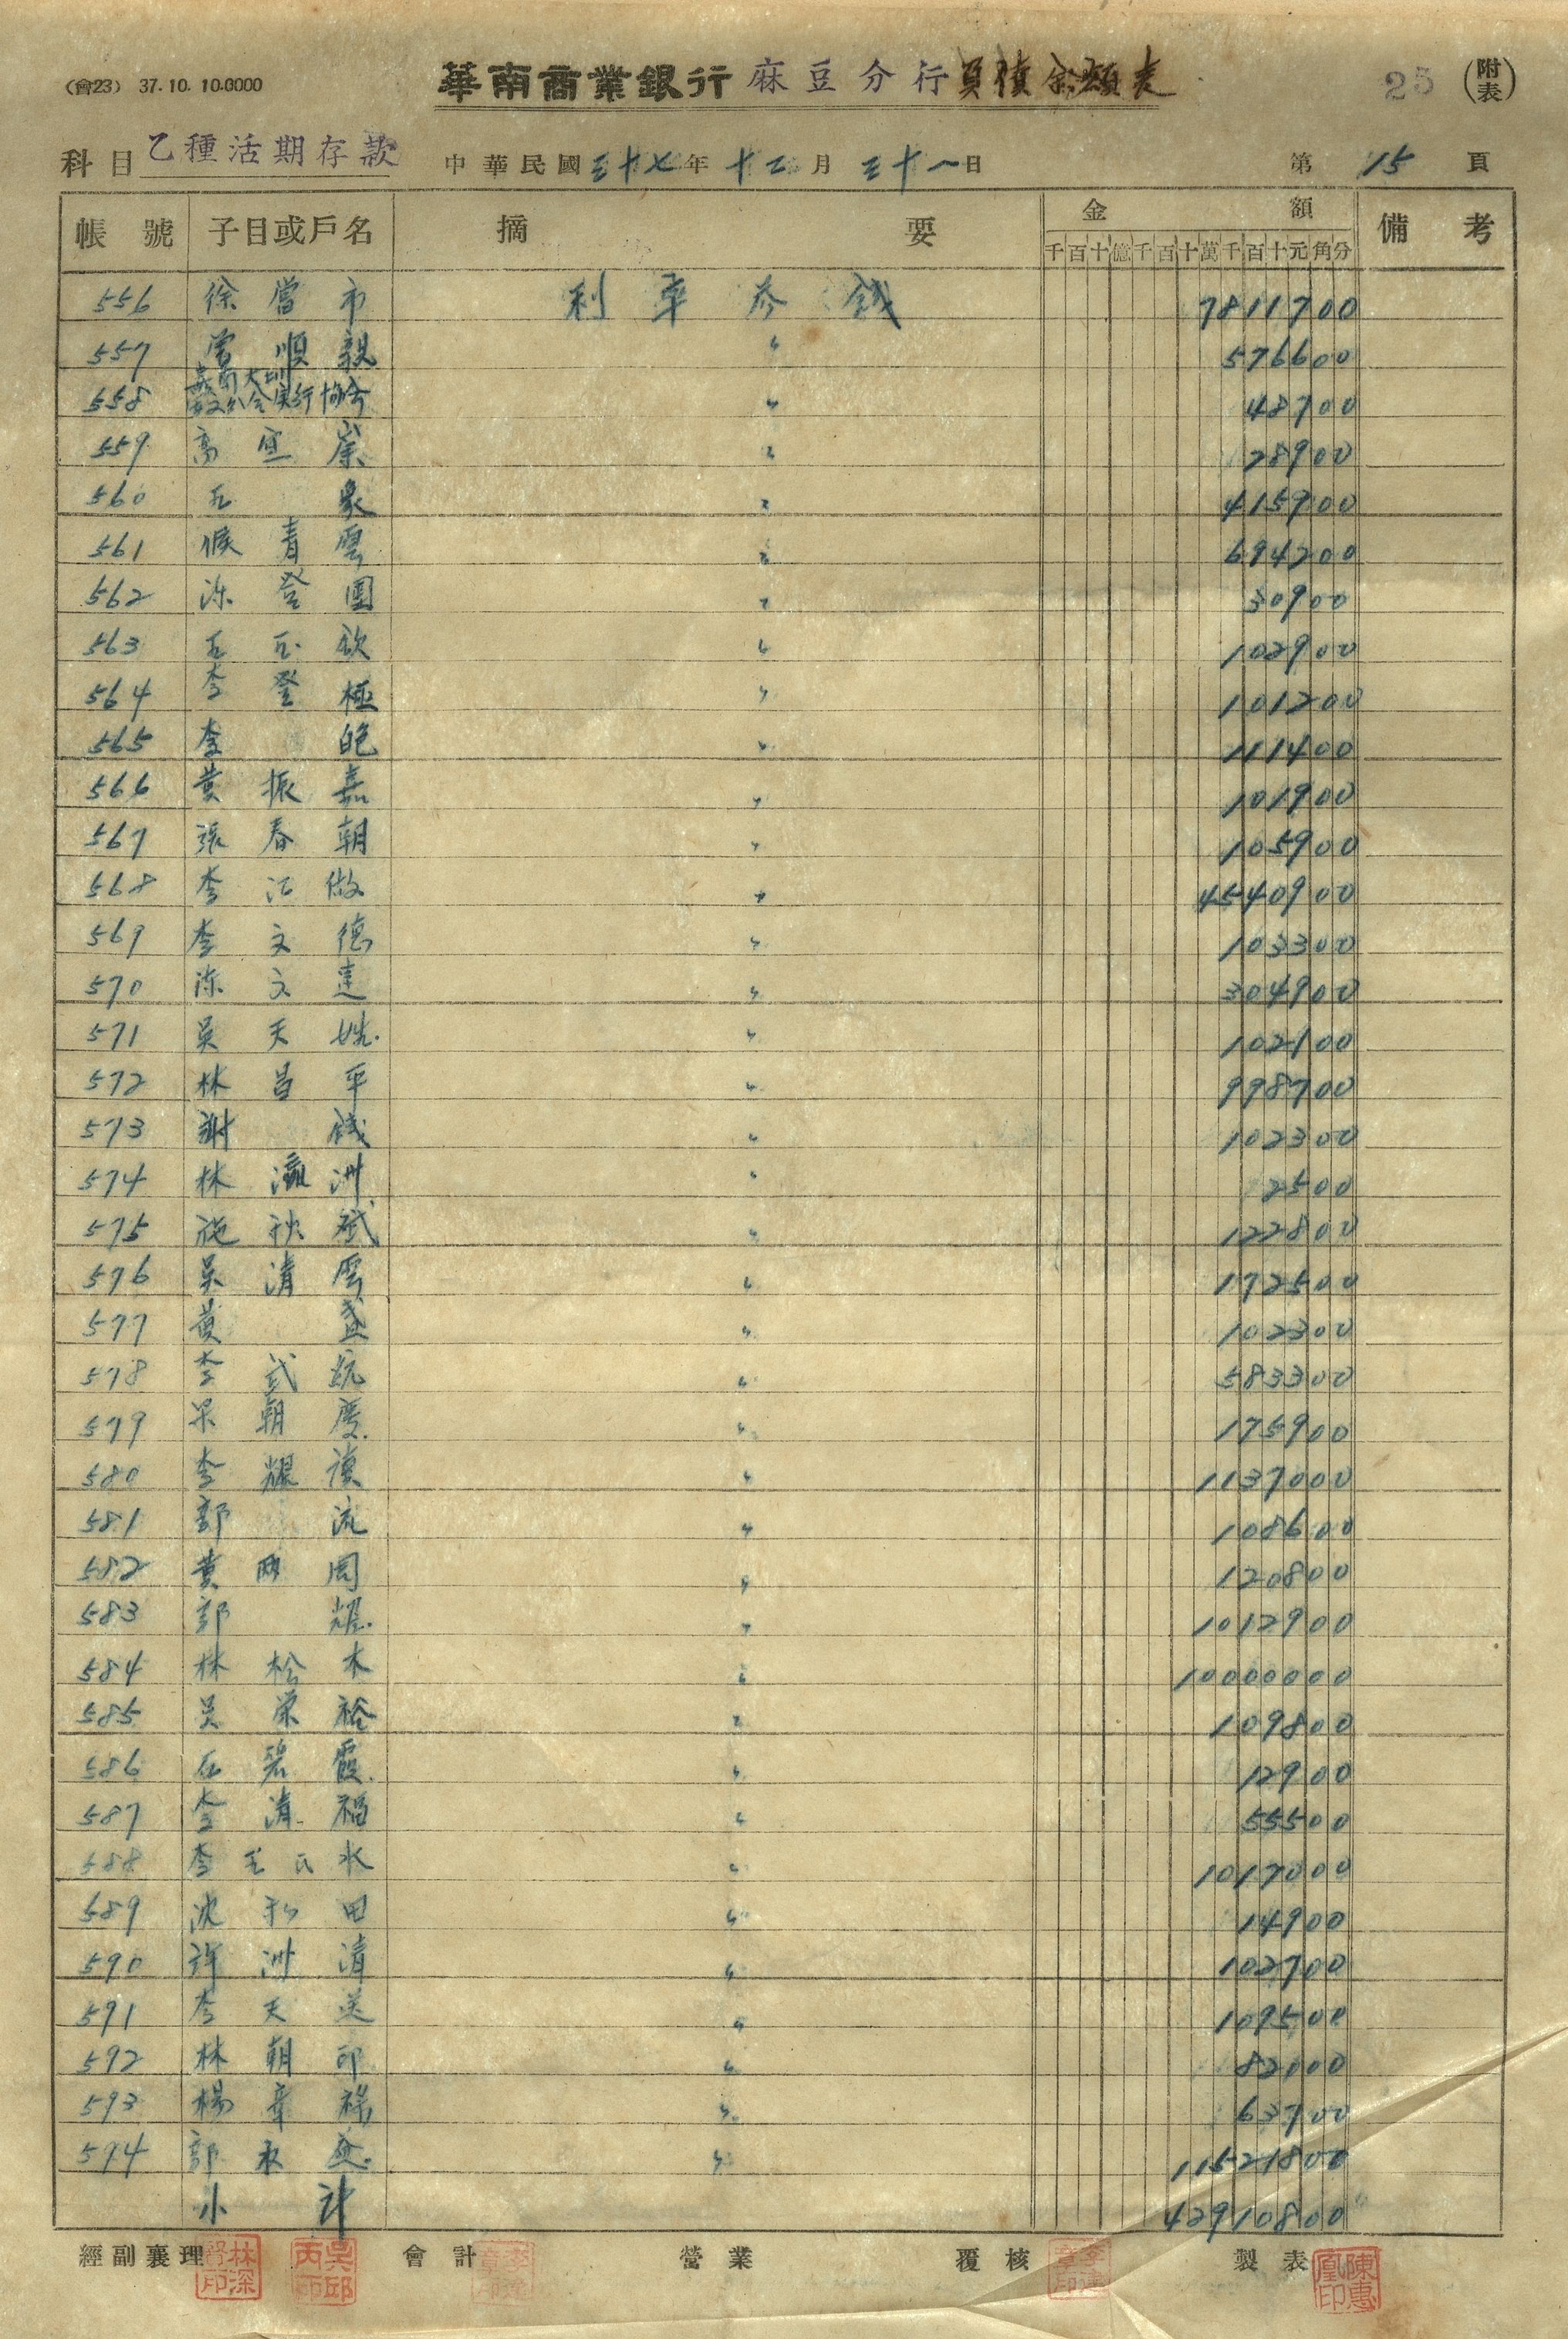 (會23) 37.10.10.0000 華南商業銀行 麻豆分行 負債余額表 25 (附表)
科目 乙種活期存款 中華民國三十七年十二月三十一日 第15頁
帳號 子目或戶名 摘要 金額 備考
千百十億千百十萬千百十元角分
556 徐當市 利率參錢 7811700
557 曾順親 〃 576600
558 〃 48700
559 高宜崇 〃 28900
560 王象 〃 415900
561 候青雲 〃 694200
562 陈登團 〃 30900
563 欽 〃 102900
564 李登極 〃 101200
565 李皅 〃 111400
566 黄振嘉 〃 101900
567 張春朝 〃 105900
568 李江做 〃 4540900
569 李文德 〃 103300
570 陈文達 〃 304900
571 吳天 〃 102100
572 林昌平 〃 998700
573 謝錢 〃 102300
574 林瀛洲 〃 2500
575 施秋斌 〃 122800
576 吳清雲 〃 172500
577 黄盛 〃 102300
578 李武 〃 583300
579 吳朝慶 〃 175900
580 李耀漢 〃 1137000
581 郭流 〃 108600
582 黄周 〃 120800
583 郭耀 〃 1012900
584 林松木 〃 10000000
585 吳榮裕 〃 109800
586 石碧霞 〃 12900
587 李清福 〃 55500
588 李王氏水 〃 1017000
589 沈和田 〃 14900
590 許洲清 〃 102700
591 李天送 〃 109500
592 林朝印 〃 82000
593 楊章祿 〃 63700
594 郭永 〃 11521800
小計 42910800
經副襄理 會計 營業 覆核 製表
陳惠凰印